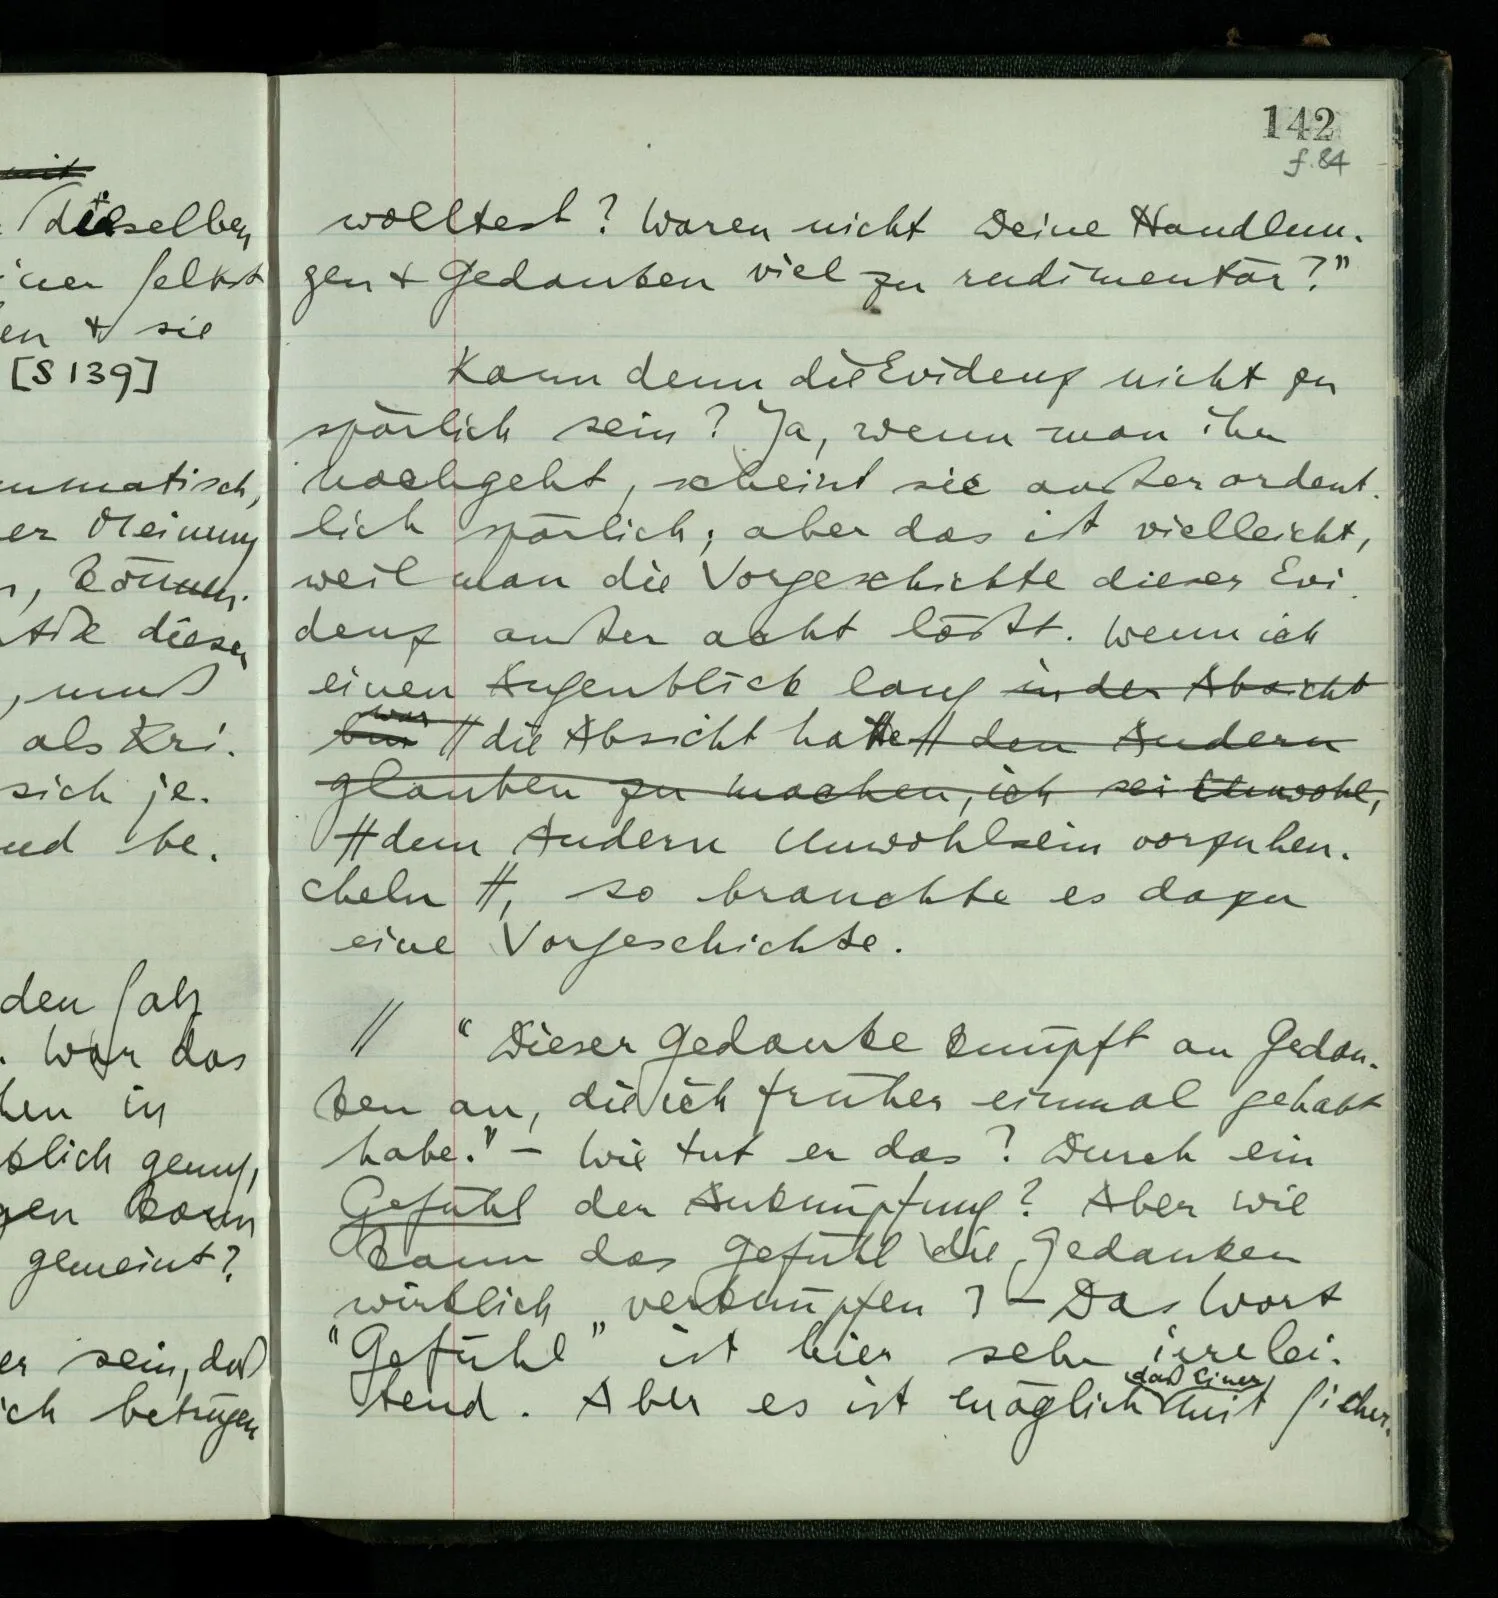 142
f. 84
wolltest? Waren nicht Deine Handlun-
gen & Gedanken viel zu rudimentär?"
Kann denn die Evidenz nicht zu
spärlich sein? Ja, wenn man ihr
nachgeht, scheint sie außerordent-
lich spärlich; aber das ist vielleicht,
weil man die Vorgeschichte dieser Evi-
denz außer acht läßt. Wenn ich
einen Augenblick lang in der Absicht
war
bin // die Absicht hatte // den Andern
glauben zu machen, ich sei Unwohl,
// dem Andern Unwohlsein vorzuheu-
cheln //, so brauchte es dazu
eine Vorgeschichte.
// "Dieser Gedanke knüpft an Gedan-
ken an, die ich früher einmal gehabt
habe." – Wie tut er das? Durch ein
Gefühl der Anknüpfung? Aber wie
kann das Gefühl die Gedanken
wirklich verknüpfen? – Das Wort
"Gefühl" ist hier sehr irrelei-
daß Einer
tend. Aber es ist möglich mit Sicher-
mit
dieselben
iner selbst
en & sie
[S 139]
mmatisch,
er Meinung
, könn-
diese
, muß
als Kri-
sich je-
nd be-
den Satz
. War das
hen in
klich genug,
gen kann
gemeint?
er sein, daß
ich betrügen